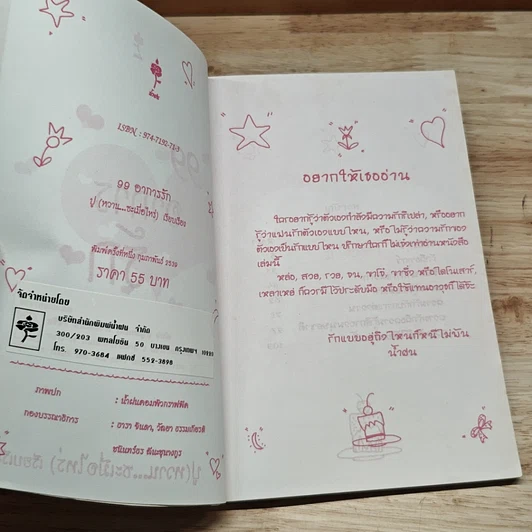 ISBN : 974-7192-71-3
99 อาการรัก
ปู (หวาน...ซะเมื่อไหร่) เรียบเรียง
พิมพ์ครั้งที่หนึ่ง กุมภาพันธ์ 2539
ราคา 55 บาท
จัดจำหน่ายโดย
บริษัทสำนักพิมพ์น้ำฝน จำกัด
300/203 พหลโยธิน 50 บางเขน กรุงเทพฯ 10220
โทร. 970-3684 แฟกซ์ 552-3898
ภาพปก : น้ำฝนคอมพิวกราฟฟิค
กองบรรณาธิการ : ธารา จินดา, วัณยา ธรรมเกียรติ
อยากให้เธออ่าน
ใครอยากรู้ว่าตัวเองกำลังมีความรักรึเปล่า, หรืออยาก
รู้ว่าแฟนรักตัวเองแบบไหน, หรือ ไม่รู้ว่าความรักของ
ตัวเองเป็นรักแบบไหน ปรึกษาใครก็ไม่เจ๋งเท่าอ่านหนังสือ
เล่มนี้
หล่อ, สวย, รวย, จน, ซาโจ้, ซาซึ่ง หรือไดโนเสาร์,
เหลาเหย่ ก็ควรมีไว้ประดับมือ หรือใช้แทนอาวุธก็ได้จ้ะ
รักแบบอยู่ถึงไหนก็หนีไม่พ้น
น้ำฝน